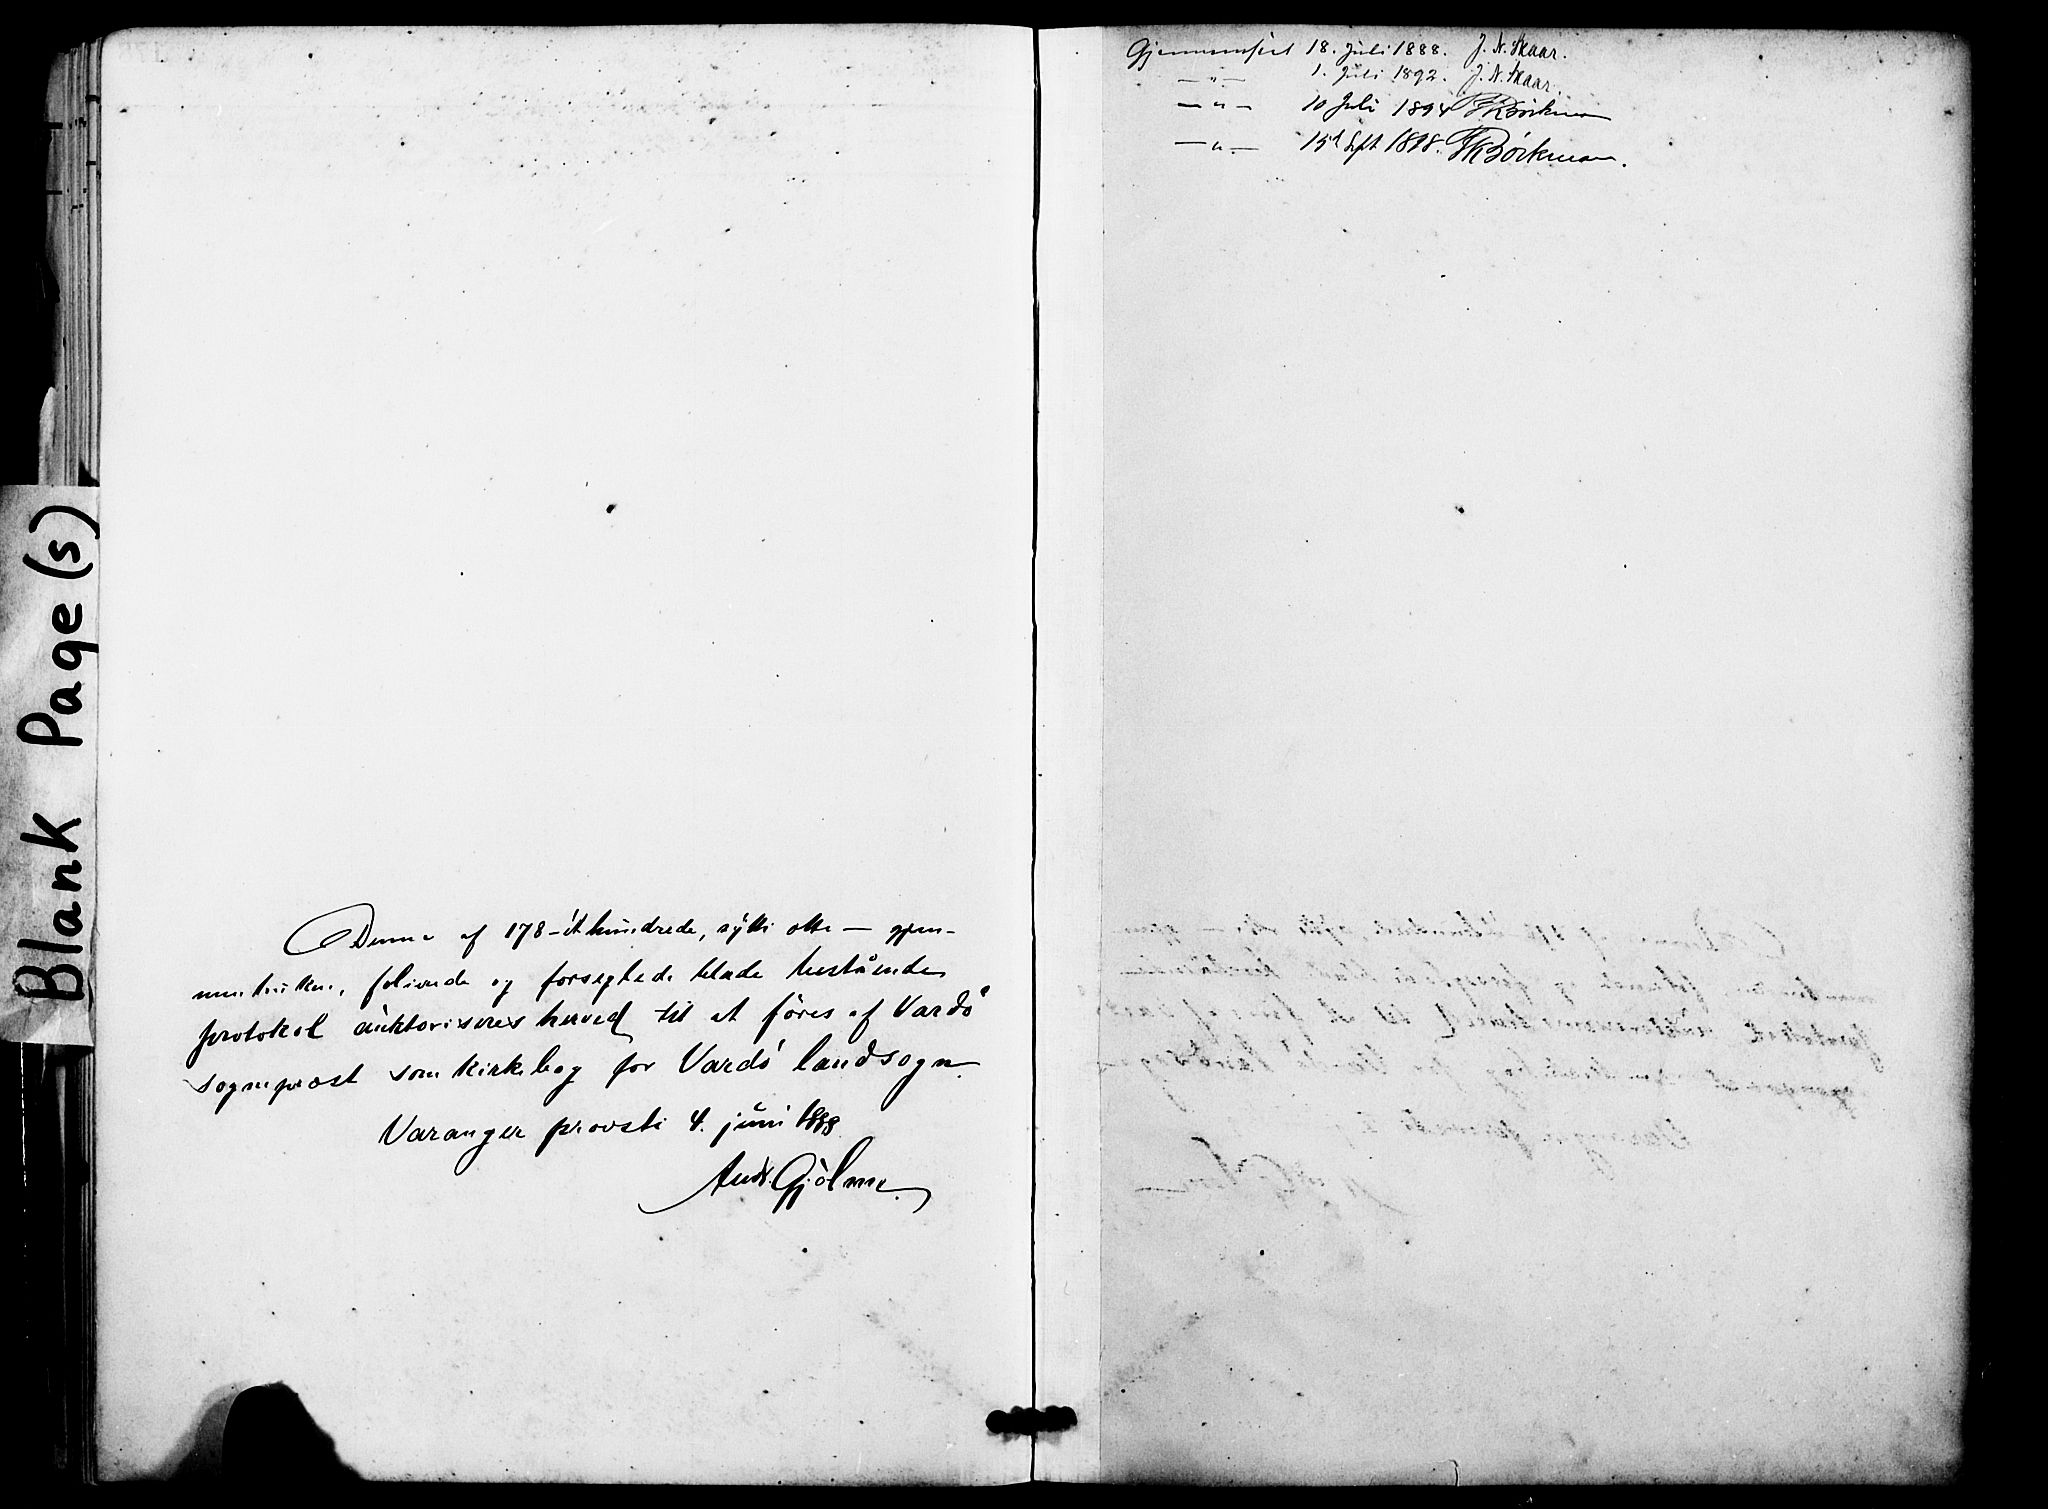 Blank Page(s)
Denne af 178 - ét hundrede, sytti otte - gjen-
nemtrukne, folierede og forseglede blade bestående
protokol auktoriseres herved til at föres af Vardö
sognepræst som kirkebog for Vardö landsogn.
Varanger provsti 4. juni 1888
Andr. Gjölme.
Gjennemseet 18. Juli 1888. J. N. Skaar.
— " — 1. Juli 1892. J. N. Skaar.
— " — 10 Juli 1894 Böckman
— " — 15d Sept 1898. Böckman.